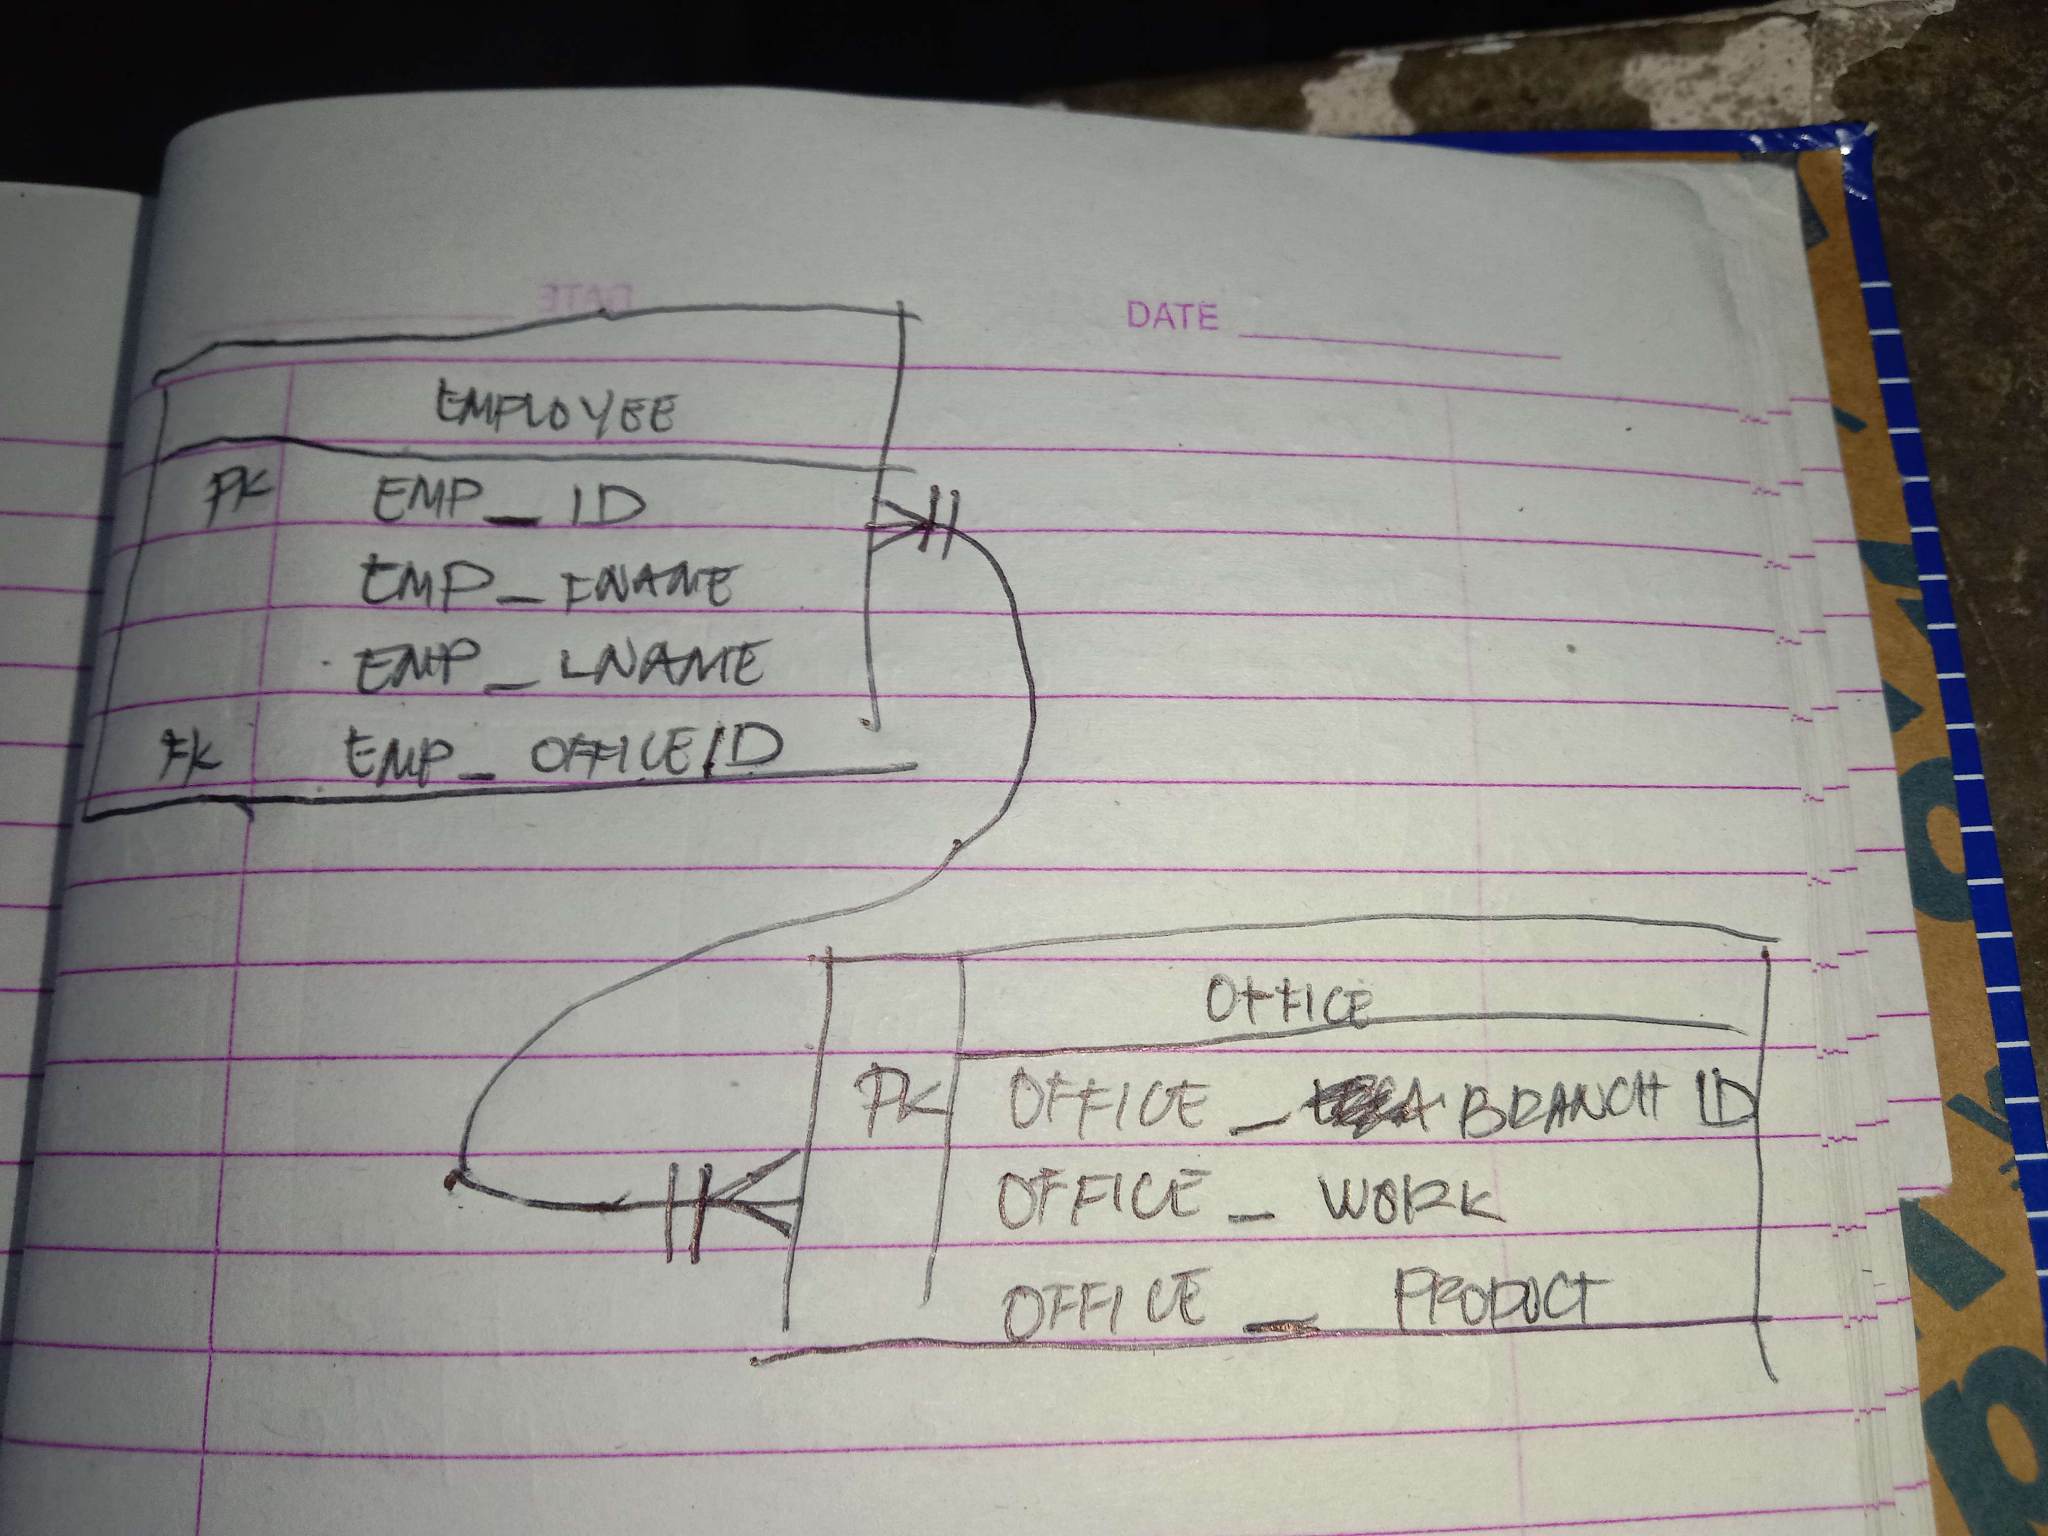 DATE
EMPLOYEE
PK EMP_ID
EMP_FNAME
EMP_LNAME
FK EMP_OFFICEID
OFFICE
PK OFFICE_BRANCH ID
OFFICE_WORK
OFFICE_PRODUCT